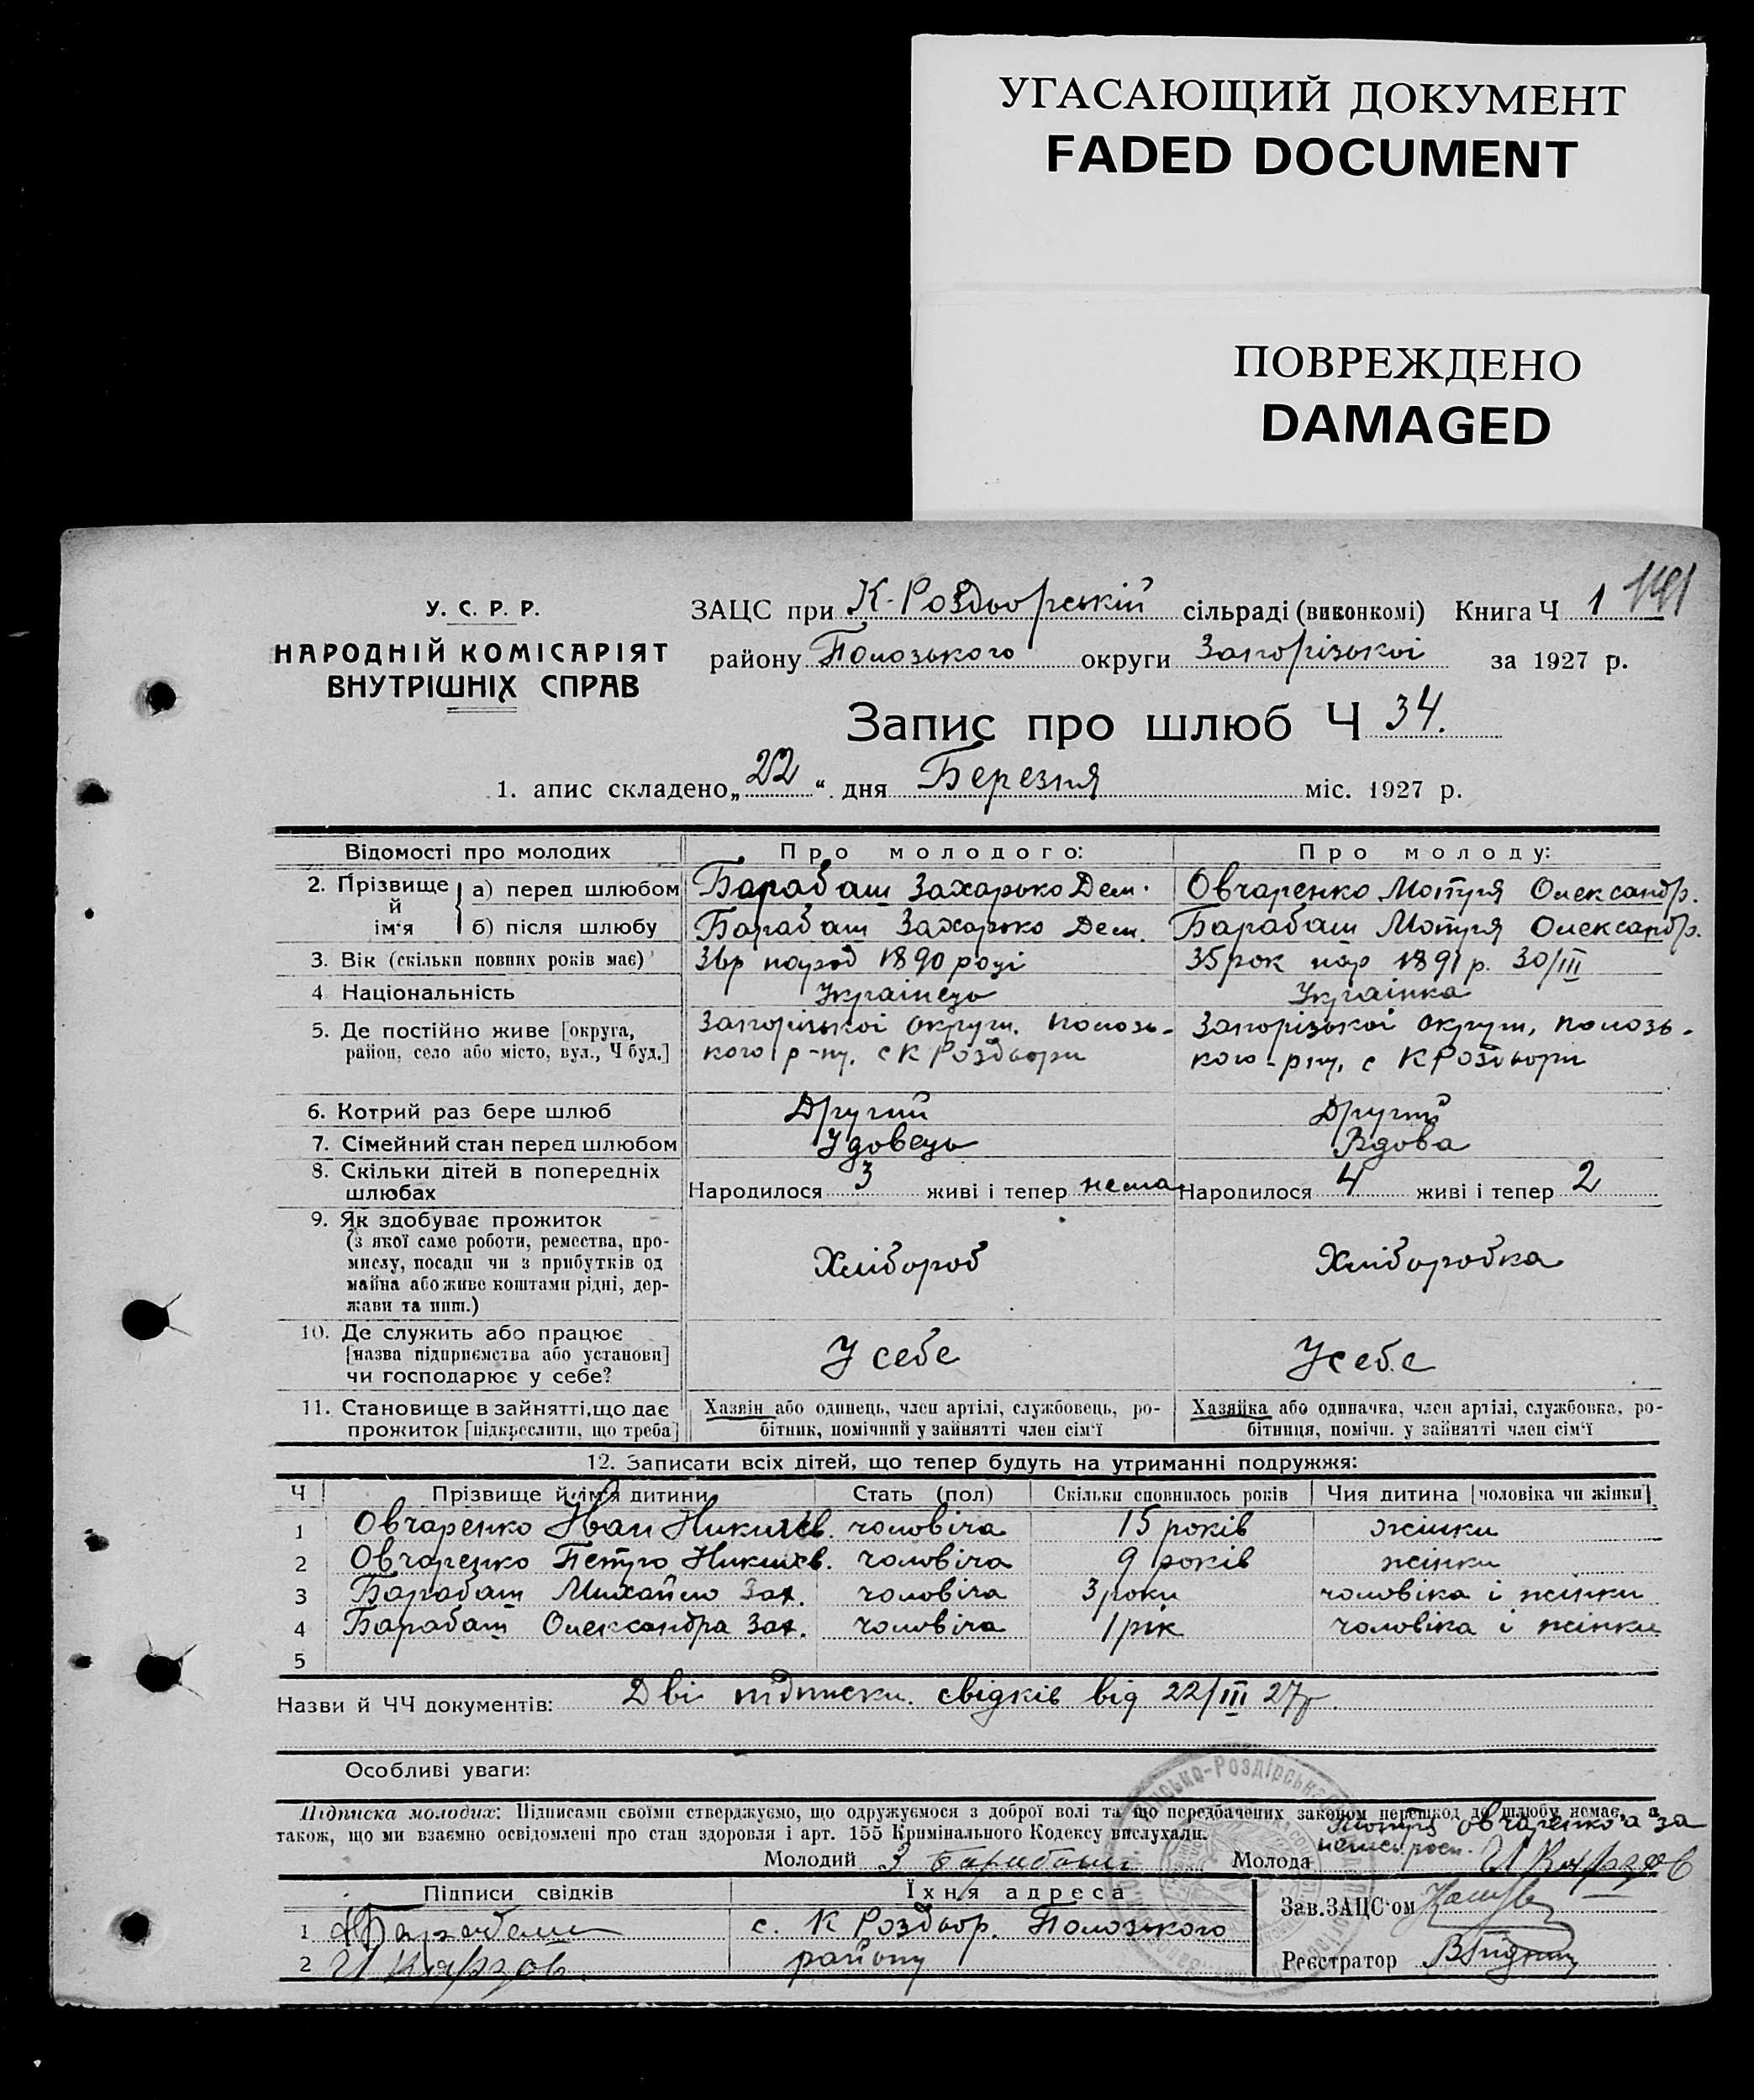 УГАСАЮЩИЙ ДОКУМЕНТ
FADED DOCUMENT
ПОВРЕЖДЕНО
DAMAGED
У. С. Р. Р.
НАРОДНІЙ КОМІСАРІЯТ
ВНУТРІШНІХ СПРАВ
ЗАЦС при К-Роздворській сільраді (виконкомі) Книга Ч 1 141
району Полозького округи Запорізької за 1927 р.
Запис про шлюб Ч 34.
1. апис складено „22“ дня Березня міс. 1927 р.
Відомості про молодих Про молодого: Про молоду:
2. Прізвище й ім'я а) перед шлюбом Барабаш Захарько Дем. Овчаренко Мотря Олександр.
б) після шлюбу Барабаш Захарько Дем. Барабаш Мотря Олександр.
3. Вік (скільки повних років має) 36р народ 1890 році 35 рок нар 1891 р. 30/III
4 Національність Українець Українка
5. Де постійно живе [округа, Запорізької округи, полозь- Запорізької округи, полозь-
район, село або місто, вул., Ч буд.] кого р-ну. с К Роздвори кого-рну, с К Роздвори
6. Котрий раз бере шлюб Другий Другий
7. Сімейний стан перед шлюбом Удовець Вдова
8. Скільки дітей в попередніх
шлюбах Народилося 3 живі і тепер нема Народилося 4 живі і тепер 2
9. Як здобуває прожиток
(з якої саме роботи, ремества, про-
мислу, посади чи з прибутків од Хлібороб Хліборобка
майна або живе коштами рідні, дер-
жави та инш.)
10. Де служить або працює
[назва підприємства або установи] У себе У себе
чи господарює у себе?
11. Становище в зайнятті, що дає Хазяїн або одинець, член артілі, службовець, ро- Хазяйка або одиначка, член артілі, службовка, ро-
прожиток [підкреслити, що треба] бітник, помічний у зайнятті член сім'ї бітниця, помічн. у зайнятті член сім'ї
12. Записати всіх дітей, що тепер будуть на утриманні подружжя:
Ч Прізвище й ім'я дитини Стать (пол) Скільки сповнилось років Чия дитина [чоловіка чи жінки]
1 Овчаренко Іван Никиєв. чоловіча 15 років жінки
2 Овчаренко Петро чоловіча 9 років жінки
3 Барабаш Михайло Зах. чоловіча 3 роки чоловіка і жінки
4 Барабаш Олександра Зах. чоловіча 1 рік чоловіка і жінки
5
Назви й ЧЧ документів: Дві підписки свідків від 22/III 27р.
Особливі уваги:
Підписка молодих: Підписами своїми стверджуємо, що одружуємося з доброї волі та що передбачених законом перешкод до шлюбу немає, а
також, що ми взаємно освідомлені про стан здоровля і арт. 155 Кримінального Кодексу вислухали. Мотря Овчаренко а за
Молодий З Барабаш Молода
Підписи свідків Їхня адреса Зав.ЗАЦС'ом
1 Барабаш с. К Роздвор. Полозького
2 району Реєстратор